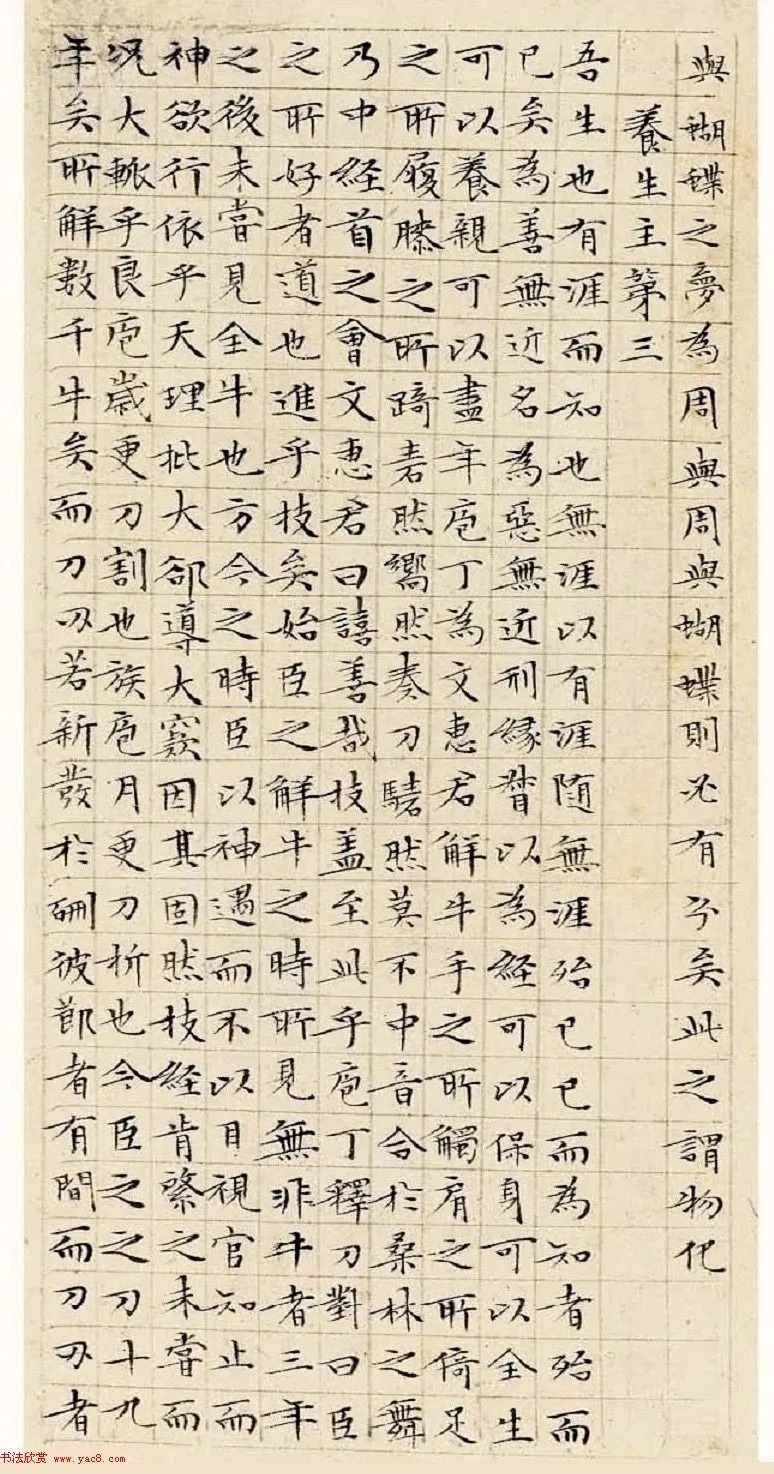 與蝴蝶之夢為周與周與蝴蝶則必有分矣此之謂物化
養生主第三
吾生也有涯而知也無涯以有涯随無涯殆已已而為知者殆而
已矣為善無近名為惡無近刑緣督以為經可以保身可以全生
可以養親可以盡年庖丁為文惠君解牛手之所觸肩之所倚足
之所履膝之所踦砉然嚮然奏刀騞然莫不中音合於桑林之舞
乃中經首之會文惠君曰譆善哉技盖至此乎庖丁釋刀對曰臣
之所好者道也進乎技矣始臣之解牛之時所見無非牛者三年
之後未嘗見全牛也方今之時臣以神遇而不以目視官知止而
神欲行依乎天理批大郤導大窾因其固然技經肯綮之未嘗而
況大軱乎良庖歲更刀割也族庖月更刀折也今臣之之刀十九
年矣所解數千牛矣而刀刃若新發於硎彼節者有間而刀刃者
书法欣赏 www.yac8.com